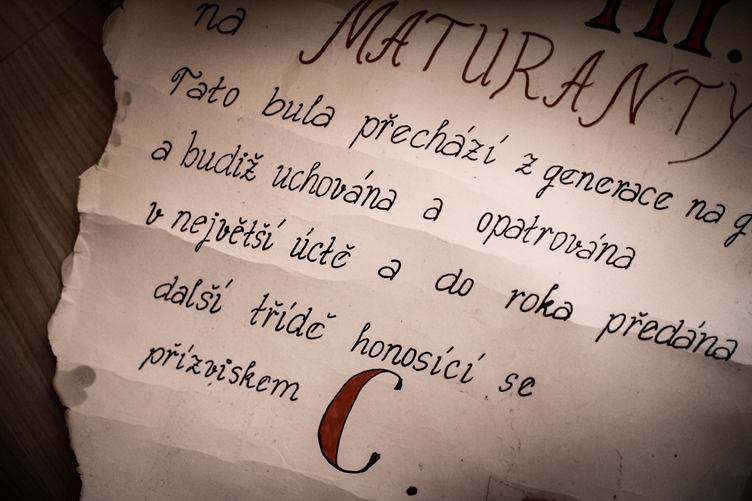 III.
na MATURANTY
Tato bula přechází z generace na g
a budiž uchována a opatrována
v největší úctě a do roka předána
další třídě honosící se
přízviskem C.